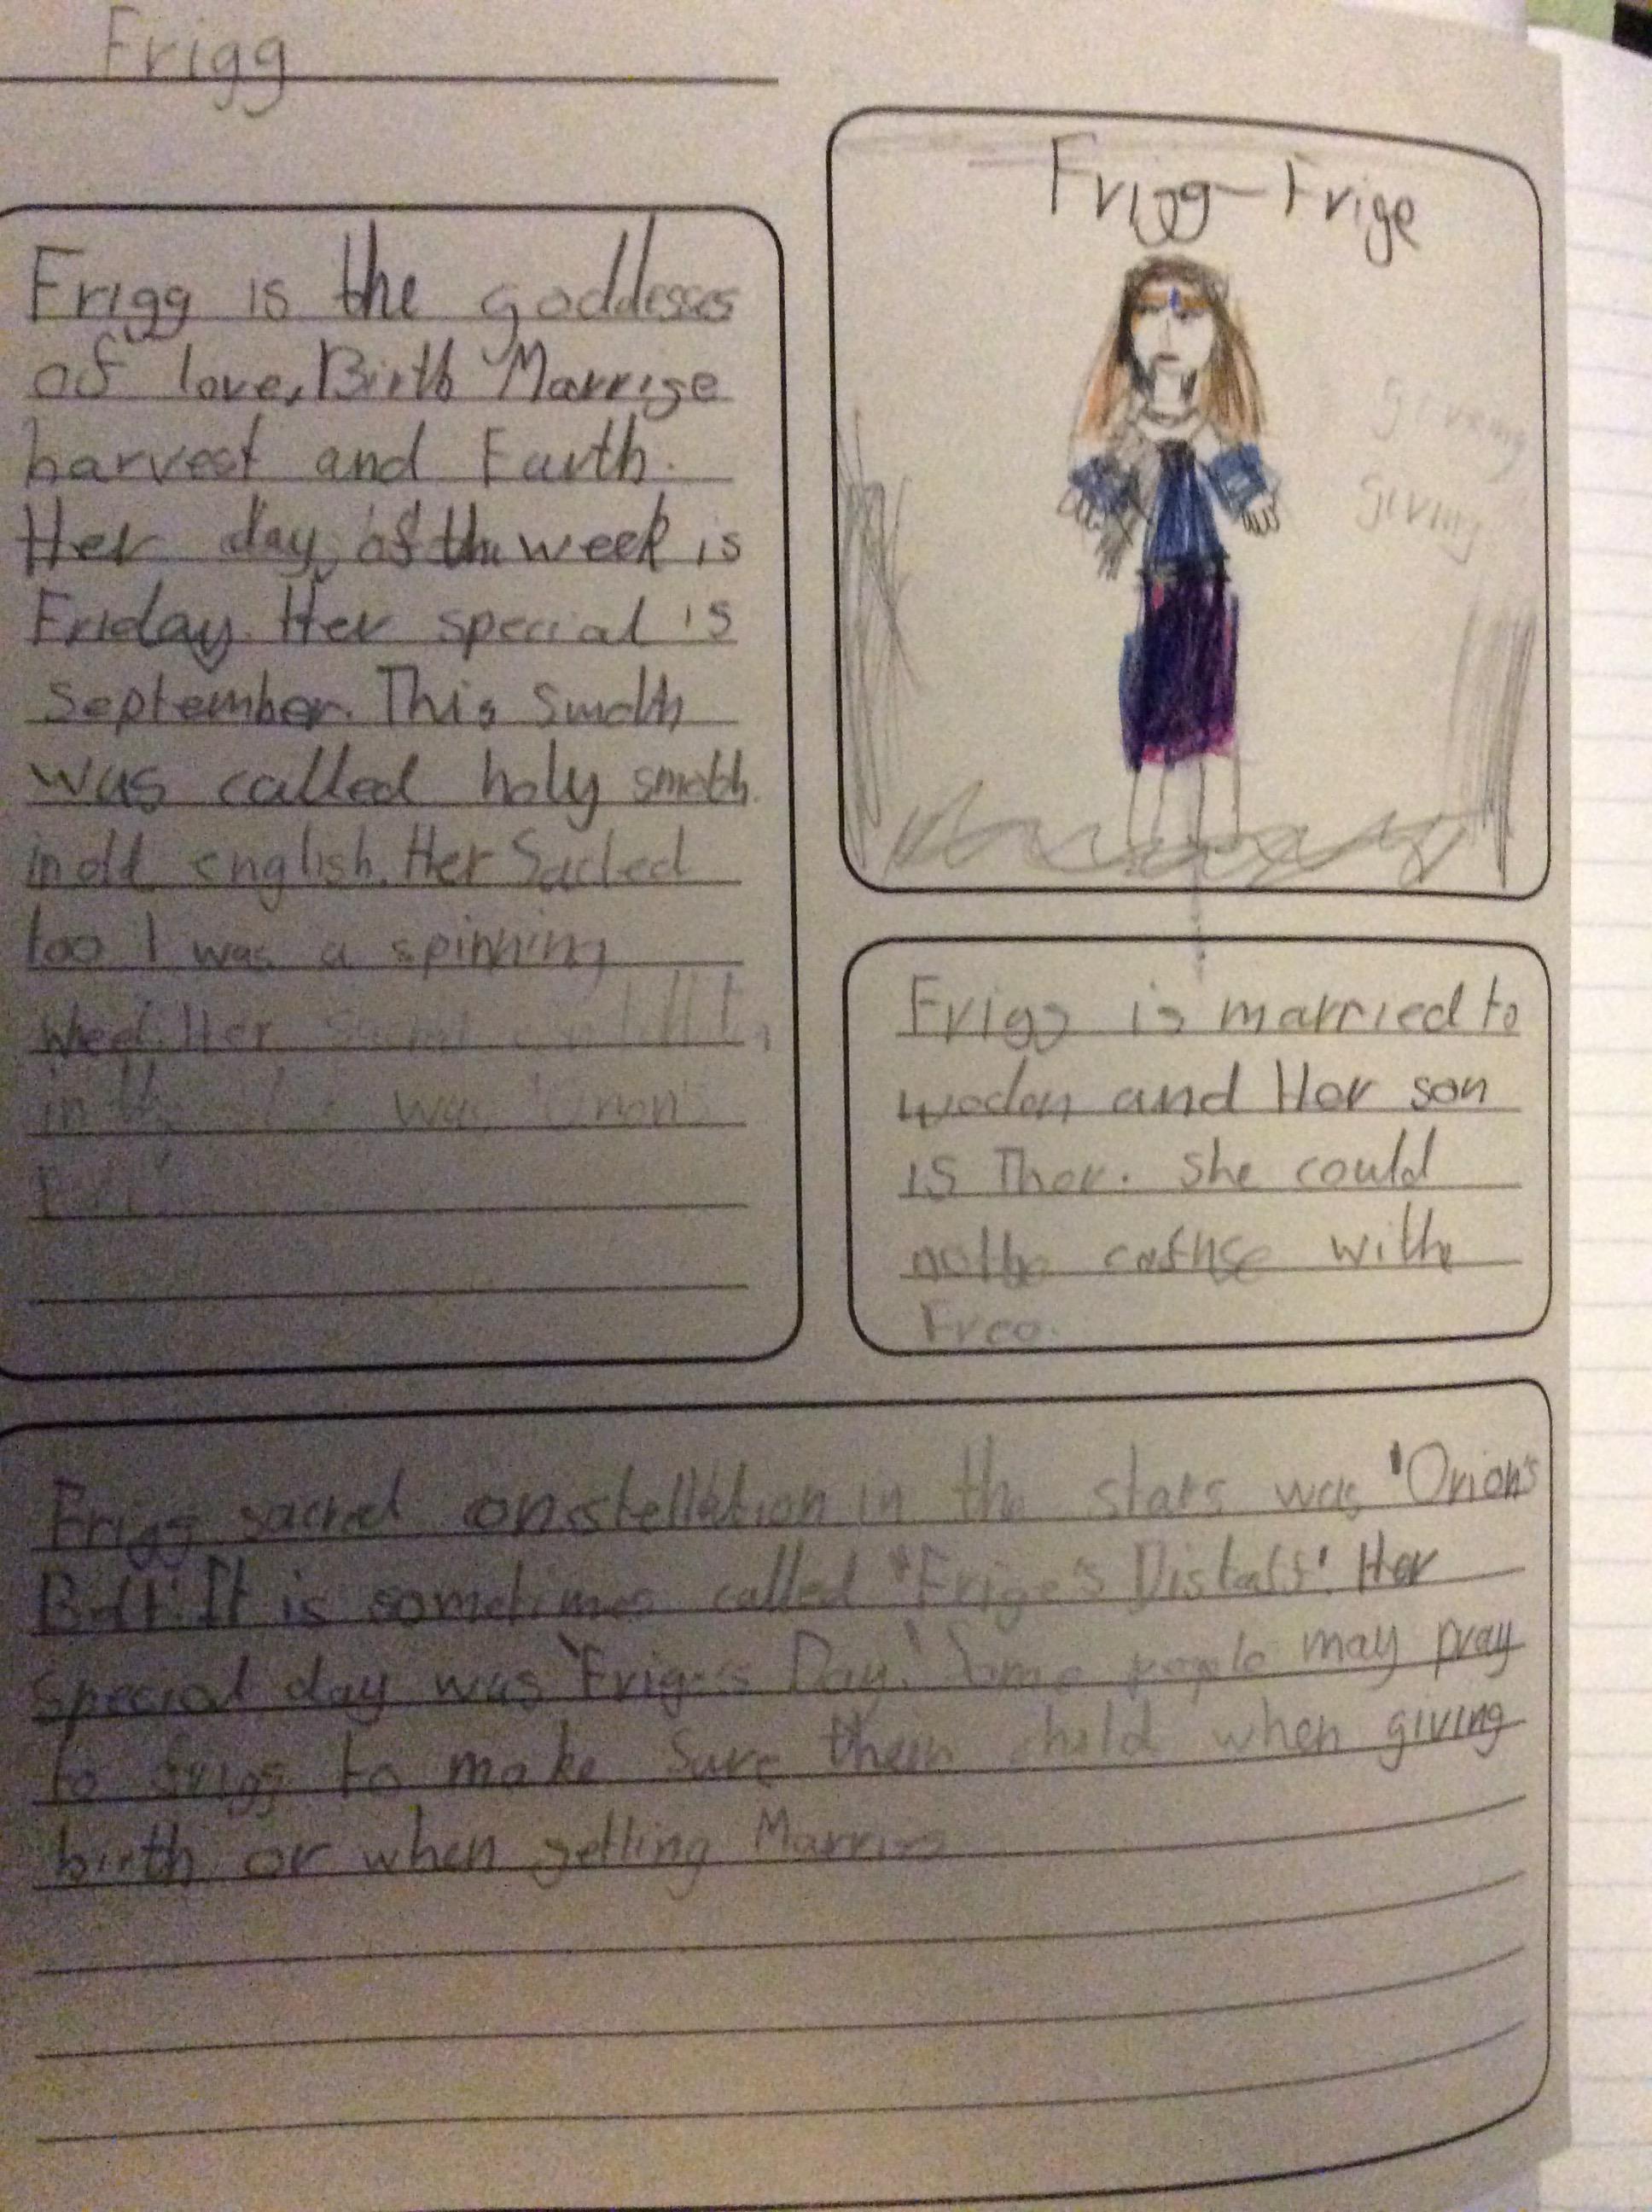 Frigg
Frigg is the goddesses
of love, Birth Marrige
harvest and Earth.
Her day of the week is
Friday. Her special is
September. This Smoth
was called holy smoth
in old english. Her Sacred
too l was a spinning
wheel. Her
in the was 'Orion's
Frigg - Frige
giveing
giving
Frigg is married to
woden and Her son
is Thor. She could
not be cofuse withe
Freo.
Frigg sacred constellation in the stars was 'Orion's
Belt'. It is sometimes called 'Frige's Distaff'. Her
special day was 'Frige's Day.' Some people may pray
to frigg to make sure their child when giving
birth or when getting